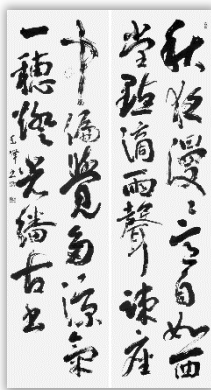 秋夜漫〻意自如西
堂點滴雨聲疎座
中偏覺多涼氣
一穗燈光繙古書